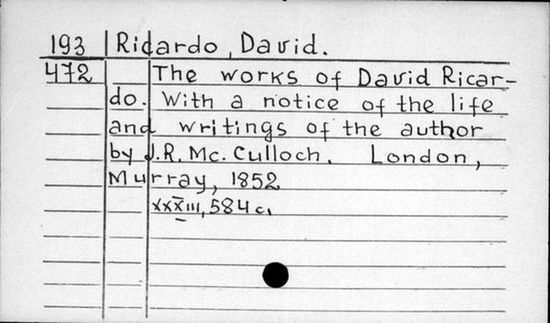 193 Ricardo, David.
472 The works of David Ricar-
do. With a notice of the life
and writings of the author
by J.R. Mc. Culloch. London,
Murray, 1852.
XXXIII, 584 c.